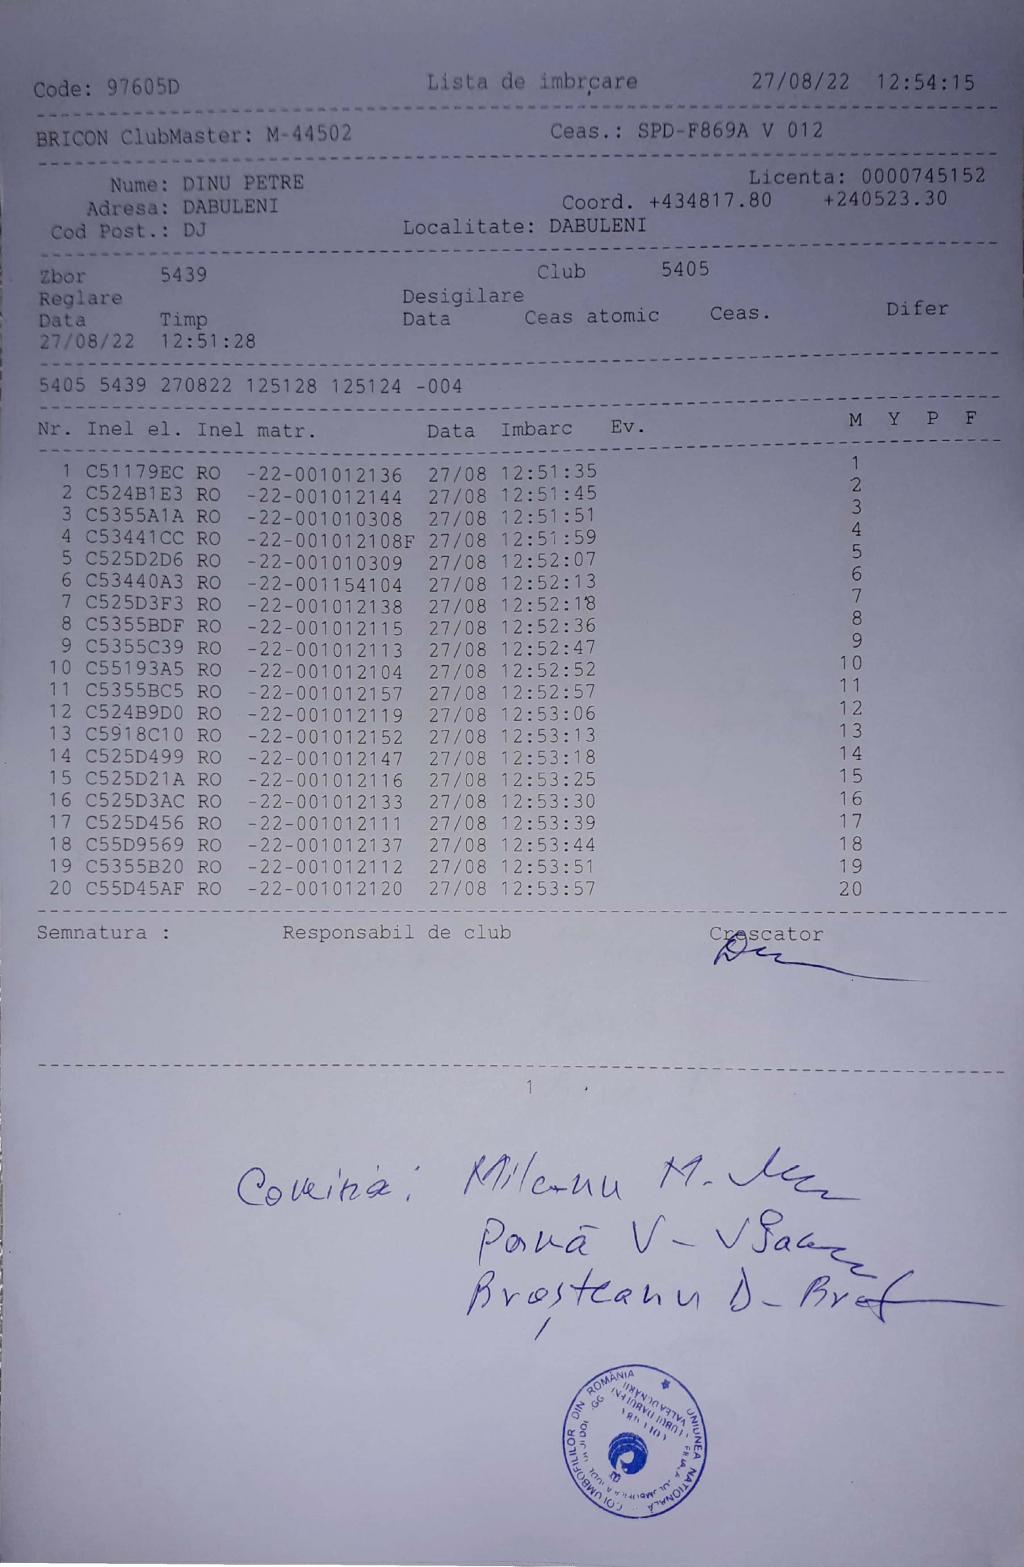 Code: 97605D Lista de imbrçare 27/08/22 12:54:15
BRICON ClubMaster: M-44502 Ceas.: SPD-F869A V 012
Nume: DINU PETRE Licenta: 0000745152
Adresa: DABULENI Coord. +434817.80 +240523.30
Cod Post.: DJ Localitate: DABULENI
Zbor 5439 Club 5405
Reglare Desigilare
Data Timp Data Ceas atomic Ceas. Difer
27/08/22 12:51:28
5405 5439 270822 125128 125124 -004
Nr. Inel el. Inel matr. Data Imbarc Ev. M Y P F
1 C51179EC RO -22-001012136 27/08 12:51:35 1
2 C524B1E3 RO -22-001012144 27/08 12:51:45 2
3 C5355A1A RO -22-001010308 27/08 12:51:51 3
4 C53441CC RO -22-001012108F 27/08 12:51:59 4
5 C525D2D6 RO -22-001010309 27/08 12:52:07 5
6 C53440A3 RO -22-001154104 27/08 12:52:13 6
7 C525D3F3 RO -22-001012138 27/08 12:52:18 7
8 C5355BDF RO -22-001012115 27/08 12:52:36 8
9 C5355C39 RO -22-001012113 27/08 12:52:47 9
10 C55193A5 RO -22-001012104 27/08 12:52:52 10
11 C5355BC5 RO -22-001012157 27/08 12:52:57 11
12 C524B9D0 RO -22-001012119 27/08 12:53:06 12
13 C5918C10 RO -22-001012152 27/08 12:53:13 13
14 C525D499 RO -22-001012147 27/08 12:53:18 14
15 C525D21A RO -22-001012116 27/08 12:53:25 15
16 C525D3AC RO -22-001012133 27/08 12:53:30 16
17 C525D456 RO -22-001012111 27/08 12:53:39 17
18 C55D9569 RO -22-001012137 27/08 12:53:44 18
19 C5355B20 RO -22-001012112 27/08 12:53:51 19
20 C55D45AF RO -22-001012120 27/08 12:53:57 20
Semnatura : Responsabil de club Crescator
1
Mileanu M.
Pană V -
Broșteanu D -
UNIUNEA NAȚIONALĂ COLUMBOFILILOR DIN ROMÂNIA